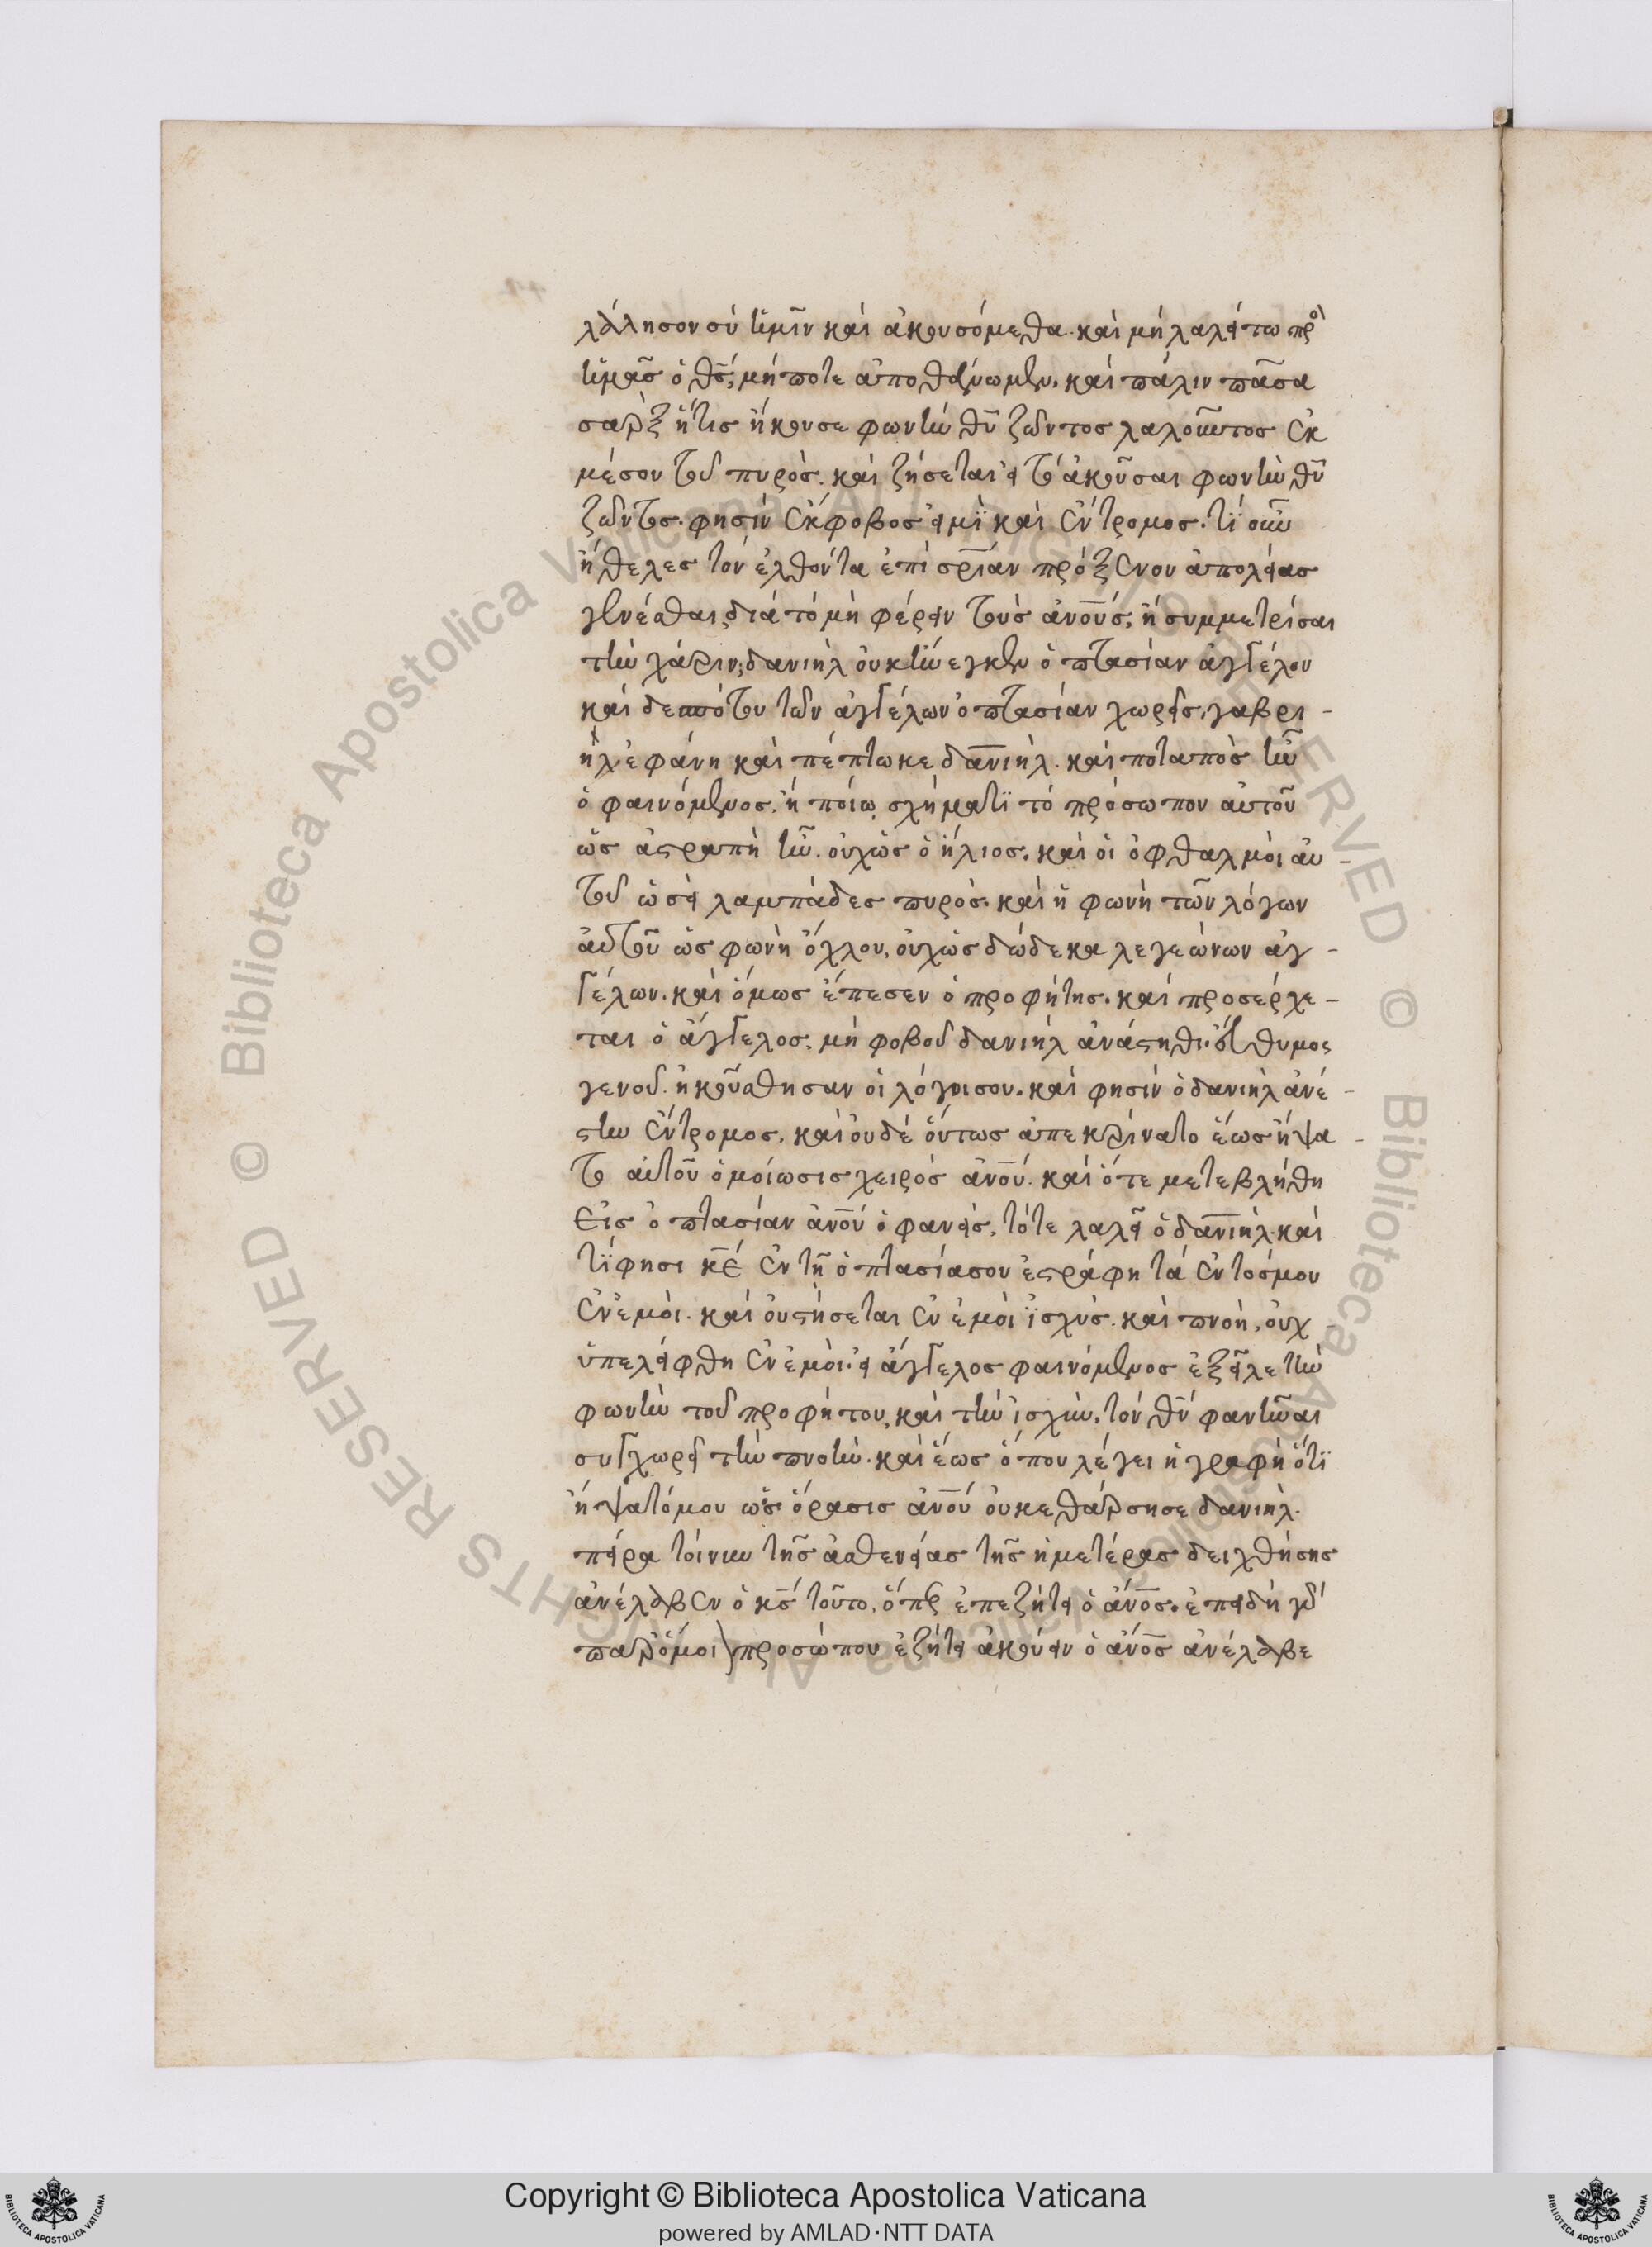 λάλησον σύ ἡμῖν καὶ ἀκουσόμεθα. καὶ μὴ λαλείτω πρὸ
ἡμᾶσ ὁ θ̅σ̅, μή ποτε ἀποθάνωμεν. καὶ πάλιν πᾶσα
σαρξ ἥτισ ἤκουσε φωνὴν θ̅υ̅ ζῶντοσ λαλοῦντοσ ἐκ
μέσου τοῦ πυρὸσ. καὶ ζήσεται· εἰ τὸ ἀκοῦσαι φωνὴν θ̅υ̅
ζῶντοσ. φησὶν ἔκφοβοσ εἰμὶ καὶ ἔντρομοσ. τί οὖν
ἤθελεσ τὸν ἐλθόντα ἐπὶ σ̅ρ̅ί̅αν πρόξενον ἀπολείασ
γενέσθαι, διὰ τὸ μὴ φέρειν τοὺσ ἀν̅ο̅ύσ, ἢ συμμετρίσαι
τὴν χάριν; δανιὴλ οὐκ ἤνεγκεν ὀπτασίαν ἀγγέλου
καὶ δεσπότου τῶν ἀγγέλων ὀπτασίαν χωρεῖσ, γαβρι -
ὴλ ἐφάνη καὶ πέπτωκε δανιὴλ. καὶ ποταπὸσ ἦν
ὁ φαινόμενοσ. ἢ ποίω σχήματϊ τὸ πρόσωπον αὐτοῦ
ὡσ ἀστραπὴ ἦν. οὐχ ὡσ ὁ ἥλιοσ. καὶ οἱ ὀφθαλμὸι αὐ -
τοῦ ὡσεὶ λαμπάδεσ πυρὸσ. καὶ ἡ φωνὴ τῶν λόγων
αὐτοῦ ὡσ φωνὴ ὄχλου, οὐχ ὡσ δώδεκα λεγεώνων ἀγ -
γέλων. καὶ ὅμωσ ἔπεσεν ὁ προφήτησ. καὶ προσέρχε -
ται ὁ ἄγγελοσ, μὴ φοβοῦ δανιὴλ ἀνάστηθι· εὔθυμος
γενοῦ. ἠκούσθησαν οἱ λόγοι σου. καὶ φησὶν ὁ δανιὴλ ἀνέ -
στην ἔντρομοσ. καὶ οὐδὲ ὅντωσ ἀπεκρίνατο ἕωσ ἥψα -
το αὐτοῦ ὁμοίωσισ χειρὸσ ἀν̅ο̅ύ. καὶ ὅτε μετεβλήθη
Εἰσ ὀπτασίαν ἀν̅ο̅ύ ὁ φανείσ, τότε λαλεῖ ὁ δανιὴλ. καὶ
τί φησι κ̅ε̅ ἐν τῆ ὀπτασία σου ἐστράφη τὰ ἐντόσ μου
ἐν ἐμὸι. καὶ οὐ στήσεται ἐν ἐμοὶ ἰσχύσ. καὶ πνοὴ, οὐχ -
ὑπελείφθη ἐν ἐμὸι· εἰ ἄγγελοσ φαινόμενοσ ἐξεῖλε τὴν
φωνὴν τοῦ προφήτου, καὶ τὴν ἰσχὺν, τὸν θ̅ν̅ φανῆναι
συγχωρεῖ τὴν πνοὴν. καὶ ἕωσ ὅπου λέγει ἡ γραφὴ ὅτϊ
ἥψατό μου ὡσ ὅρασισ ἀν̅ο̅ύ οὐκ ἐθάρσησε δανιὴλ.
πείρα τοίνυν τῆσ ἀσθενείασ τῆσ ἡμετέρασ δειχθήσησ
ἀνέλαβεν ὁ κ̅σ̅ τοῦτο, ὅπερ ἐπεζήτει ὁ ἄν̅ο̅σ. ἐπειδὴ γὰρ
παρομοίου προσώπου ἐζήτει ἀκούειν ὁ ἄν̅ο̅σ ἀνέλαβε